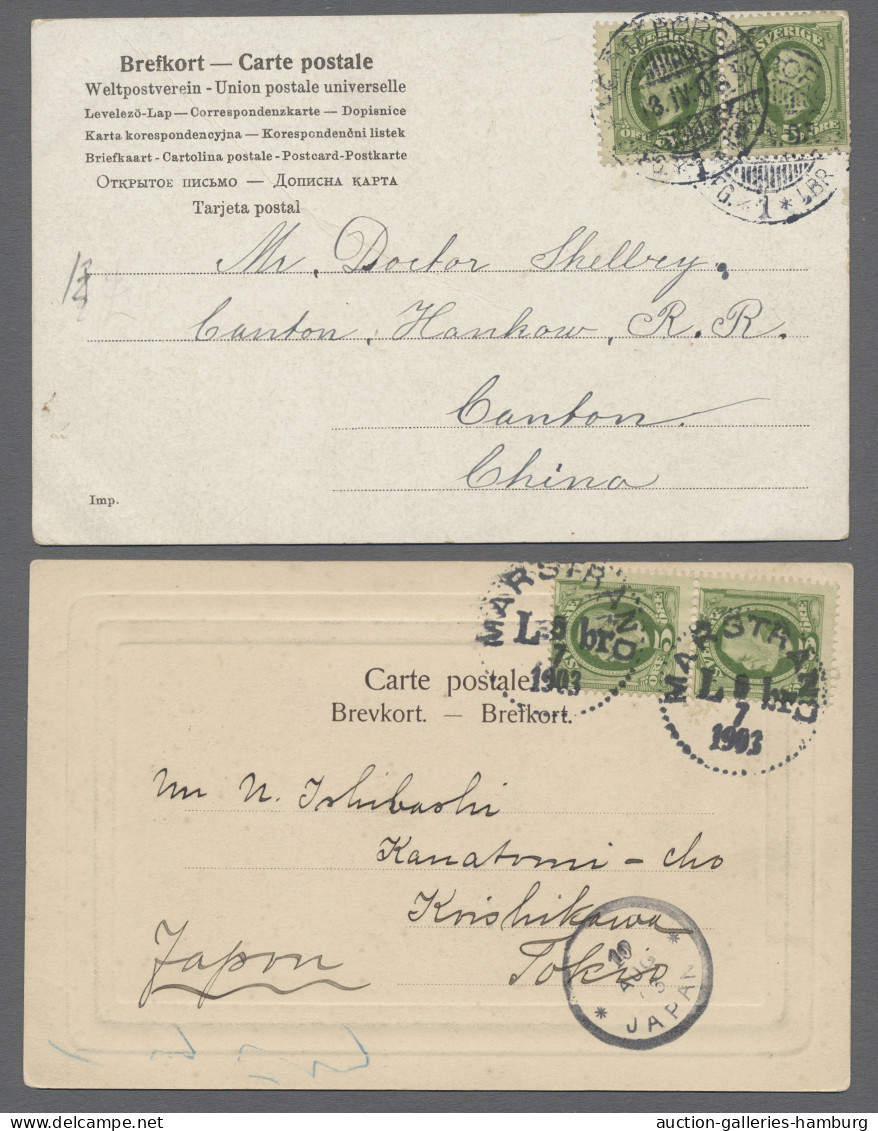 Brefkort — Carte postale
Weltpostverein - Union postale universelle
Levelezö-Lap — Correspondenzkarte — Dopisnice
Karta korespondencyjna — Korespondenční listek
Briefkaart - Cartolina postale - Postcard-Postkarte
Открытое письмо — Дописна карта
Tarjeta postal
SVERIGE
Mr. Doctor Shelbry.
Canton, Hankow, R. R.
Canton.
China
Imp.
MARSTRAND
L 8 br
7
1903
MARSTRAND
L 8 br
7
1903
Carte postale.
Brevkort. — Brefkort.
N. Ishibashi
Kanatomi-cho
Koishikawa
Tokio
Japon
10
AUG
JAPAN
auction-galleries-hamburg